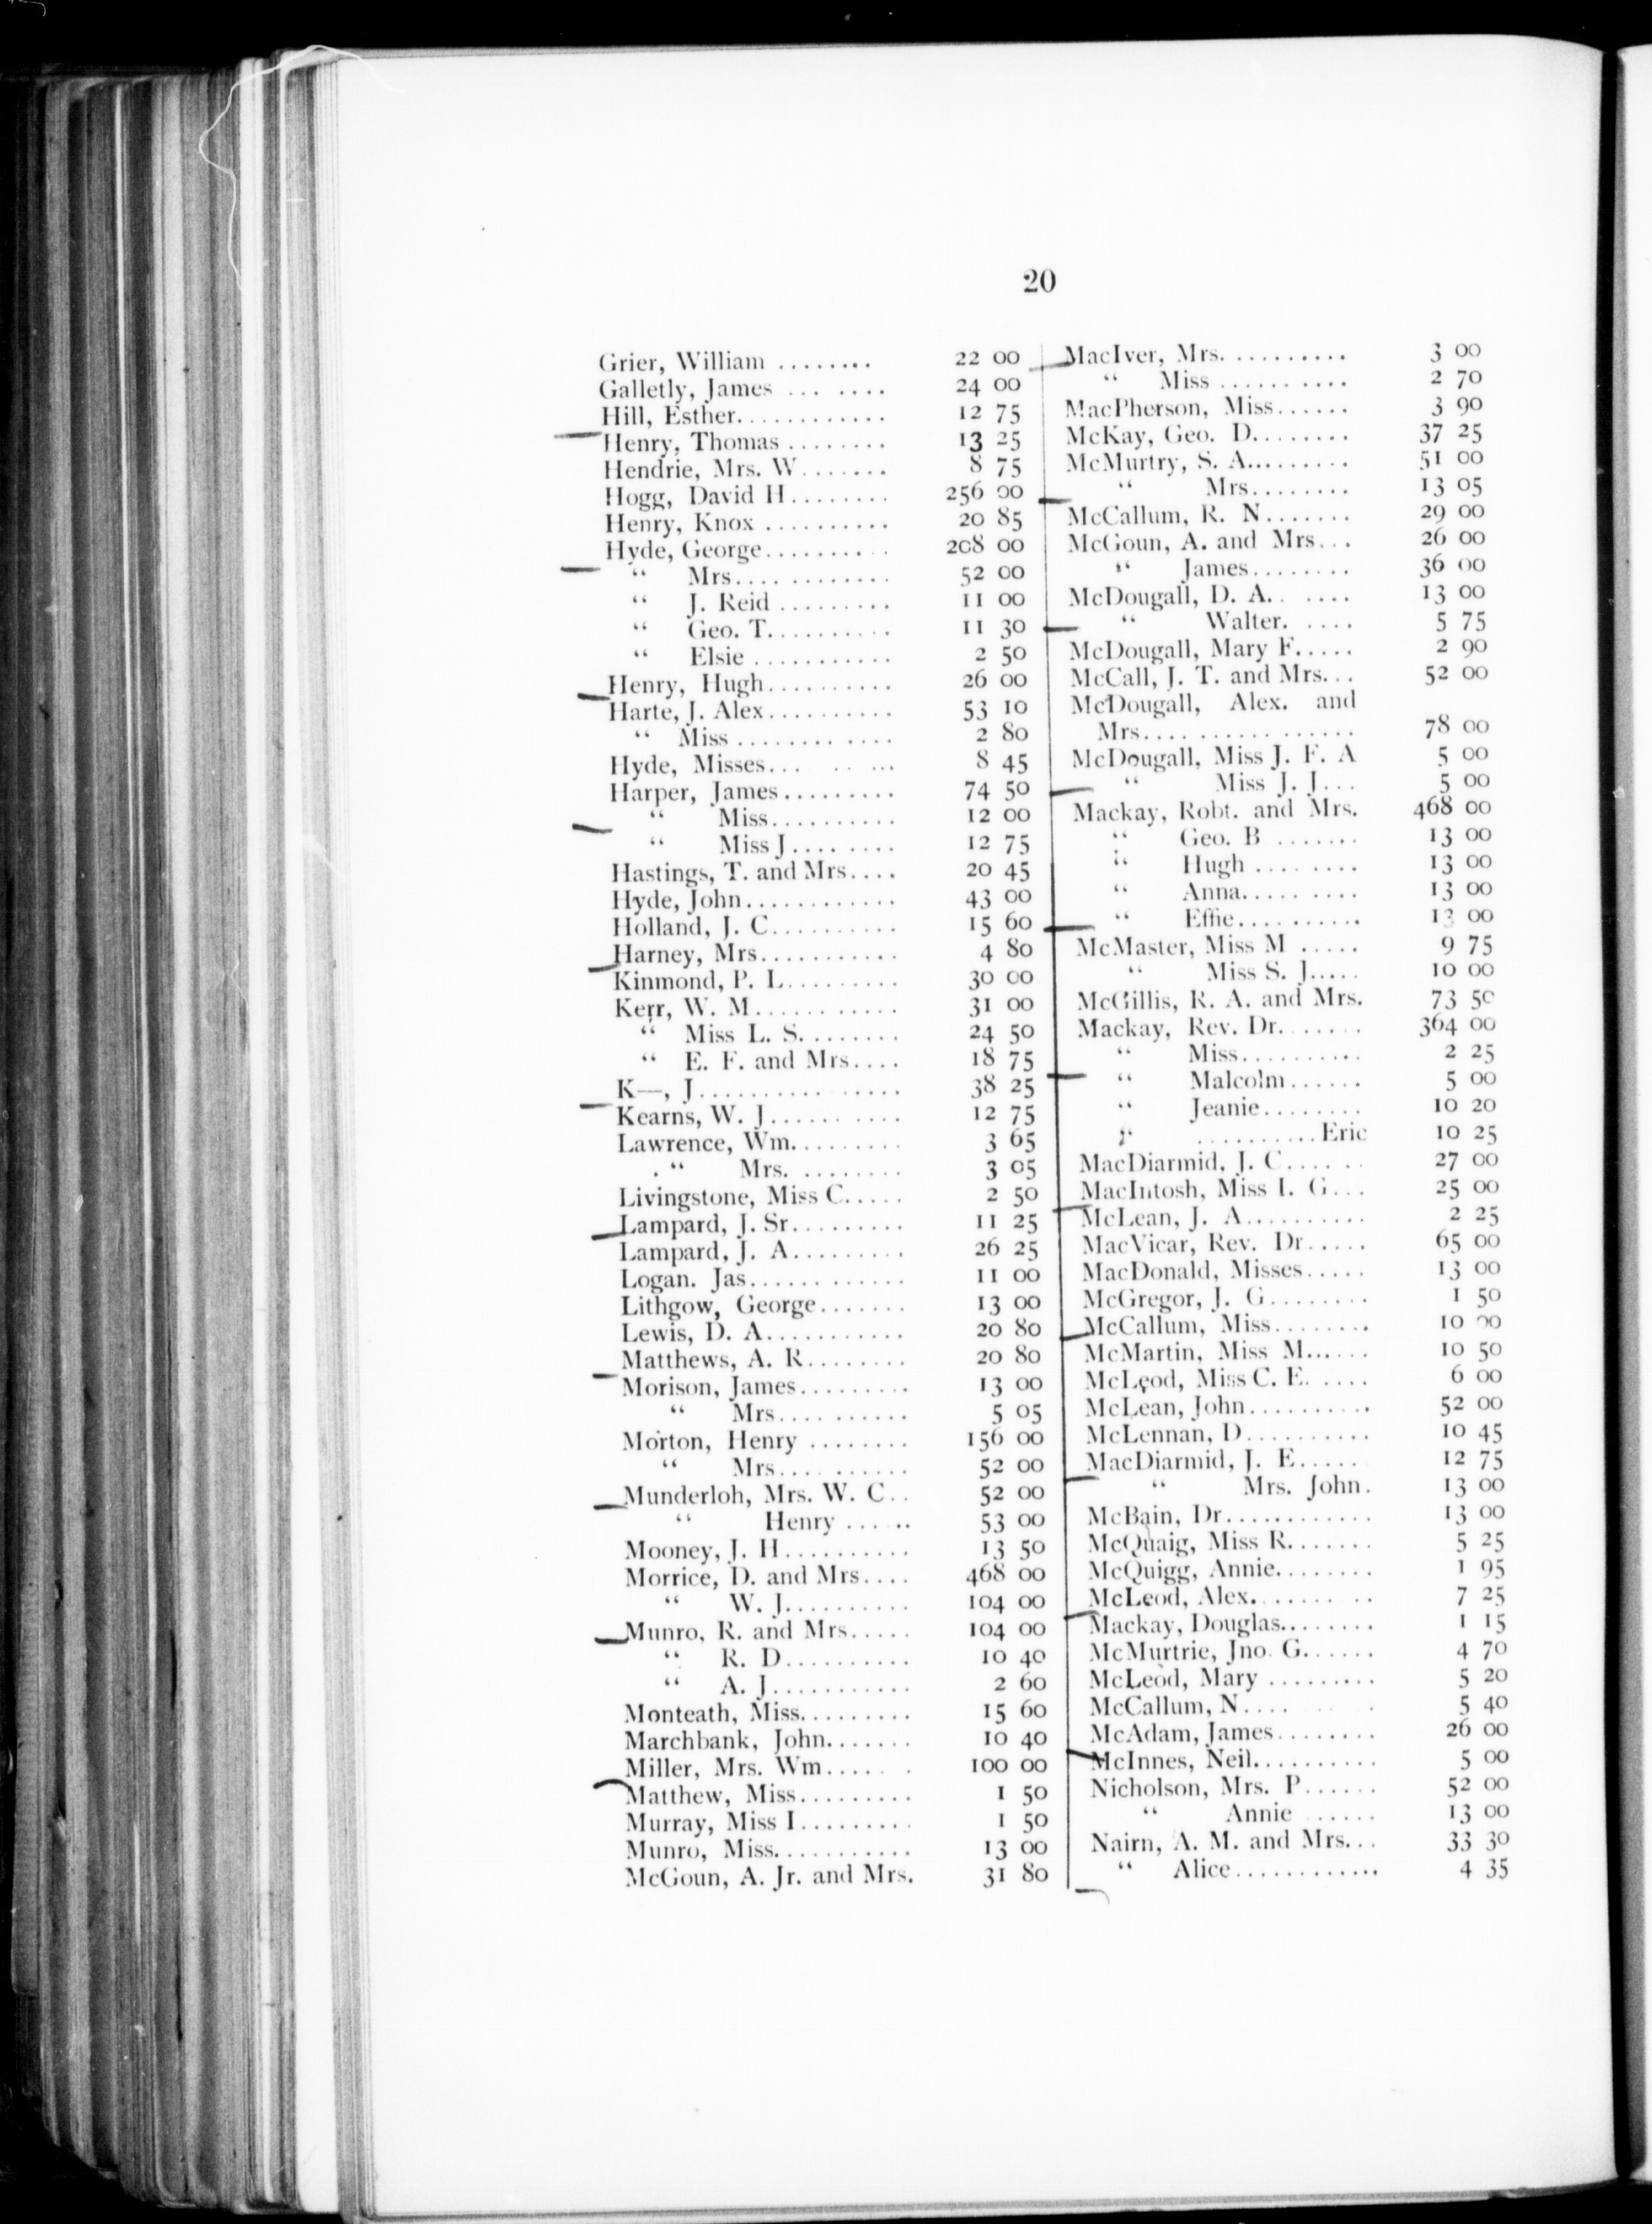 20
Grier, William ........ 22 00
Galletly, James ... ..... 24 00
Hill, Esther............ 12 75
Henry, Thomas ........ 13 25
Hendrie, Mrs. W....... 8 75
Hogg, David H........ 256 00
Henry, Knox .......... 20 85
Hyde, George.......... 208 00
“ Mrs............ 52 00
“ J. Reid ......... 11 00
“ Geo. T.......... 11 30
“ Elsie ........... 2 50
Henry, Hugh.......... 26 00
Harte, J. Alex.......... 53 10
“ Miss ............ 2 80
Hyde, Misses... .. ... 8 45
Harper, James......... 74 50
“ Miss.......... 12 00
“ Miss J........ 12 75
Hastings, T. and Mrs.... 20 45
Hyde, John............ 43 00
Holland, J. C.......... 15 60
Harney, Mrs........... 4 80
Kinmond, P. L......... 30 00
Kerr, W. M........... 31 00
“ Miss L. S........ 24 50
“ E. F. and Mrs.... 18 75
K—, J................ 38 25
Kearns, W. J........... 12 75
Lawrence, Wm......... 3 65
“ Mrs. ........ 3 05
Livingstone, Miss C..... 2 50
Lampard, J. Sr......... 11 25
Lampard, J. A......... 26 25
Logan. Jas............. 11 00
Lithgow, George....... 13 00
Lewis, D. A........... 20 80
Matthews, A. R........ 20 80
Morison, James......... 13 00
“ Mrs.......... 5 05
Morton, Henry ........ 156 00
“ Mrs.......... 52 00
Munderloh, Mrs. W. C.. 52 00
“ Henry ...... 53 00
Mooney, J. H.......... 13 50
Morrice, D. and Mrs.... 468 00
“ W. J.......... 104 00
Munro, R. and Mrs..... 104 00
“ R. D.......... 10 40
“ A. J........... 2 60
Monteath, Miss......... 15 60
Marchbank, John....... 10 40
Miller, Mrs. Wm...... . 100 00
Matthew, Miss......... 1 50
Murray, Miss I......... 1 50
Munro, Miss........... 13 00
McGoun, A. Jr. and Mrs. 31 80
MacIver, Mrs. .......... 3 00
“ Miss ........... 2 70
MacPherson, Miss...... 3 90
McKay, Geo. D........ 37 25
McMurtry, S. A......... 51 00
“ Mrs........ 13 05
McCallum, R. N....... 29 00
McGoun, A. and Mrs... 26 00
“ James........ 36 00
McDougall, D. A.. .... 13 00
“ Walter. .... 5 75
McDougall, Mary F..... 2 90
McCall, J. T. and Mrs... 52 00
McDougall, Alex. and
Mrs................. 78 00
McDougall, Miss J. F. A 5 00
“ Miss J. J... 5 00
Mackay, Robt. and Mrs. 468 00
“ Geo. B ....... 13 00
“ Hugh ........ 13 00
“ Anna......... 13 00
“ Effie.......... 13 00
McMaster, Miss M ..... 9 75
“ Miss S. J..... 10 00
McGillis, R. A. and Mrs. 73 50
Mackay, Rev. Dr....... 364 00
“ Miss.......... 2 25
“ Malcolm...... 5 00
“ Jeanie........ 10 20
“ ..........Eric 10 25
MacDiarmid, J. C...... 27 00
MacIntosh, Miss I. G... 25 00
McLean, J. A.......... 2 25
MacVicar, Rev. Dr..... 65 00
MacDonald, Misses..... 13 00
McGregor, J. G........ 1 50
McCallum, Miss........ 10 00
McMartin, Miss M...... 10 50
McLeod, Miss C. E. .... 6 00
McLean, John.......... 52 00
McLennan, D.......... 10 45
MacDiarmid, J. E..... 12 75
“ Mrs. John. 13 00
McBain, Dr............ 13 00
McQuaig, Miss R....... 5 25
McQuigg, Annie........ 1 95
McLeod, Alex......... 7 25
Mackay, Douglas........ 1 15
McMurtrie, Jno. G...... 4 70
McLeod, Mary ......... 5 20
McCallum, N.... . 5 40
McAdam, James........ 26 00
McInnes, Neil.......... 5 00
Nicholson, Mrs. P...... 52 00
“ Annie ...... 13 00
Nairn, A. M. and Mrs... 33 30
“ Alice............ 4 35